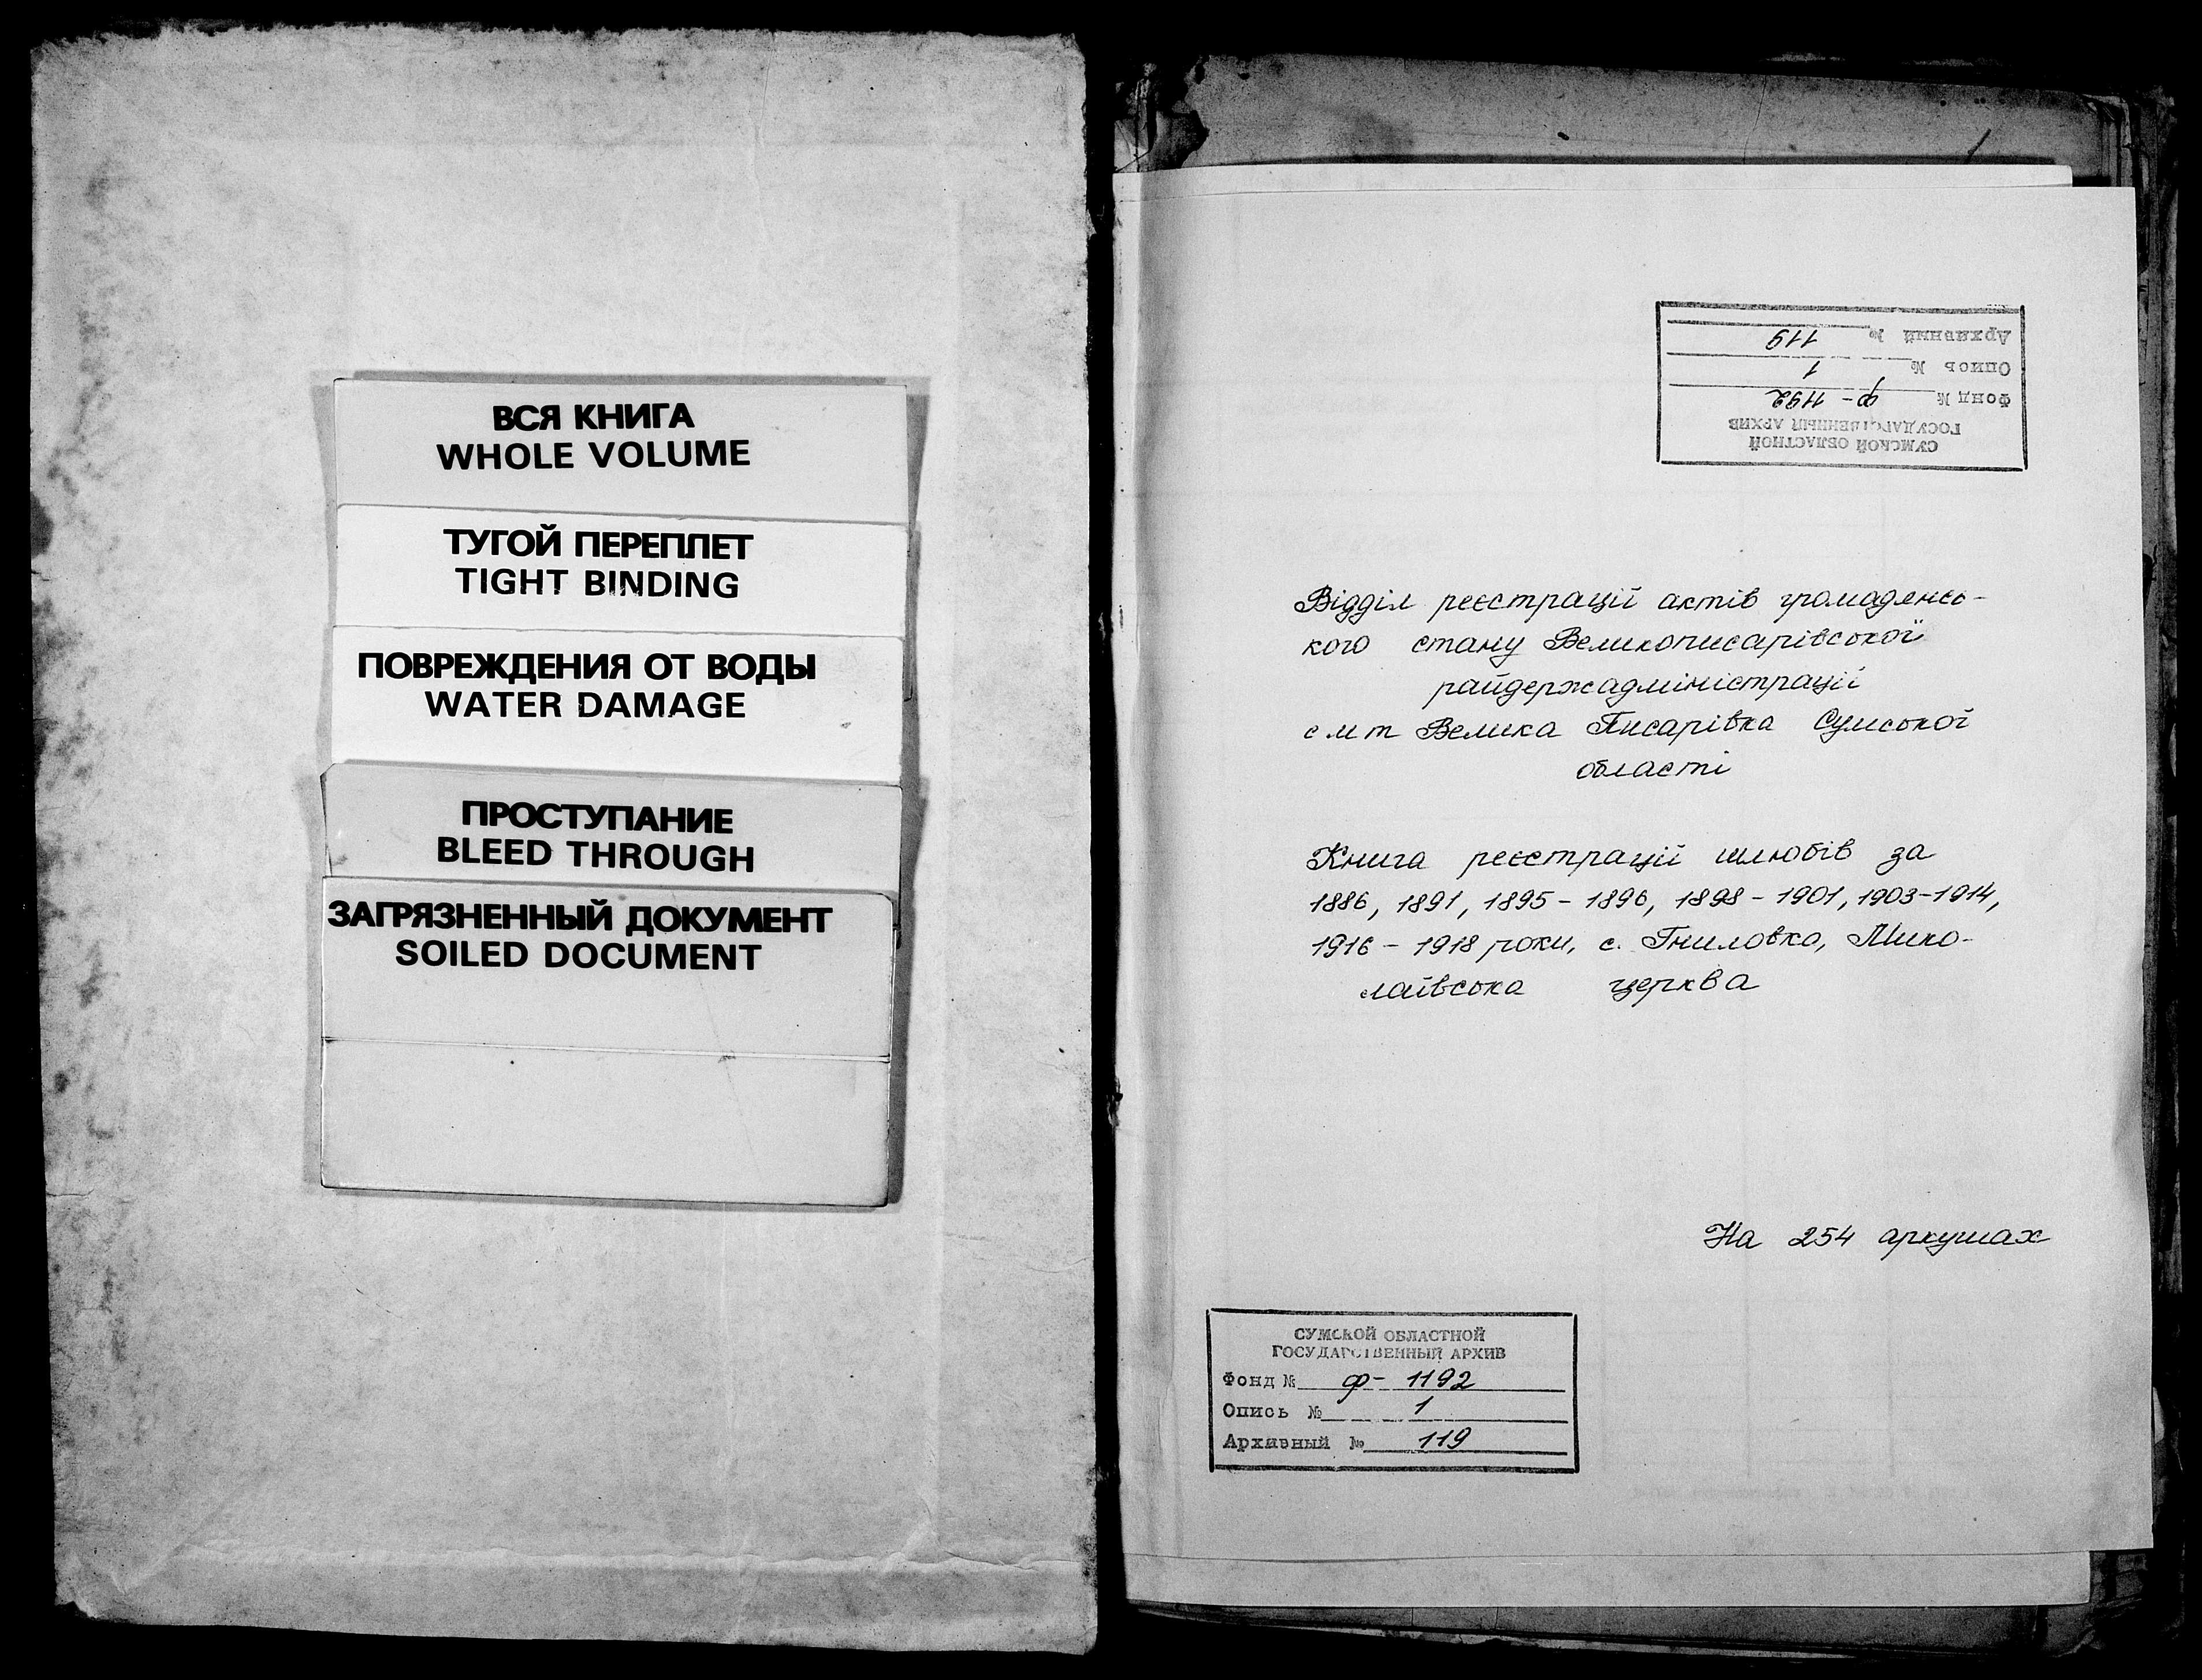 ВСЯ КНИГА
WHOLE VOLUME
ТУГОЙ ПЕРЕПЛЕТ
TIGHT BINDING
ПОВРЕЖДЕНИЯ ОТ ВОДЫ
WATER DAMAGE
ПРОСТУПАНИЕ
BLEED THROUGH
ЗАГРЯЗНЕННЫЙ ДОКУМЕНТ
SOILED DOCUMENT
1
СУМСКОЙ ОБЛАСТНОЙ
ГОСУДАРСТВЕННЫЙ АРХИВ
Фонд № ф- 1192
Опись № 1
Архивный № 119
Відділ реєстрації актів громадянсь-
кого стану Великописарівської
райдержадміністрації
смт Велика Писарівка Сумської
області
Книга реєстрації шлюбів за
1886, 1891, 1895 - 1896, 1898 - 1901, 1903-1914,
1916 - 1918 роки, с. Гниловка, Мико-
лаївська церква
На 254 аркушах
СУМСКОЙ ОБЛАСТНОЙ
ГОСУДАРСТВЕННЫЙ АРХИВ
Фонд № ф- 1192
Опись № 1
Архивный № 119